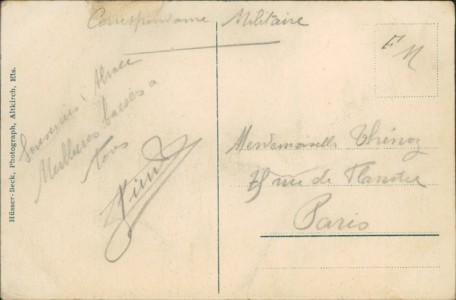 Correspondance Militaire
F M
Souvenir d'Alsace
Meilleurs baisers à
Tous
Mesdemoiselle
rue de Flandre
Paris
Hüsser-Beck, Photograph, Altkirch, Els.